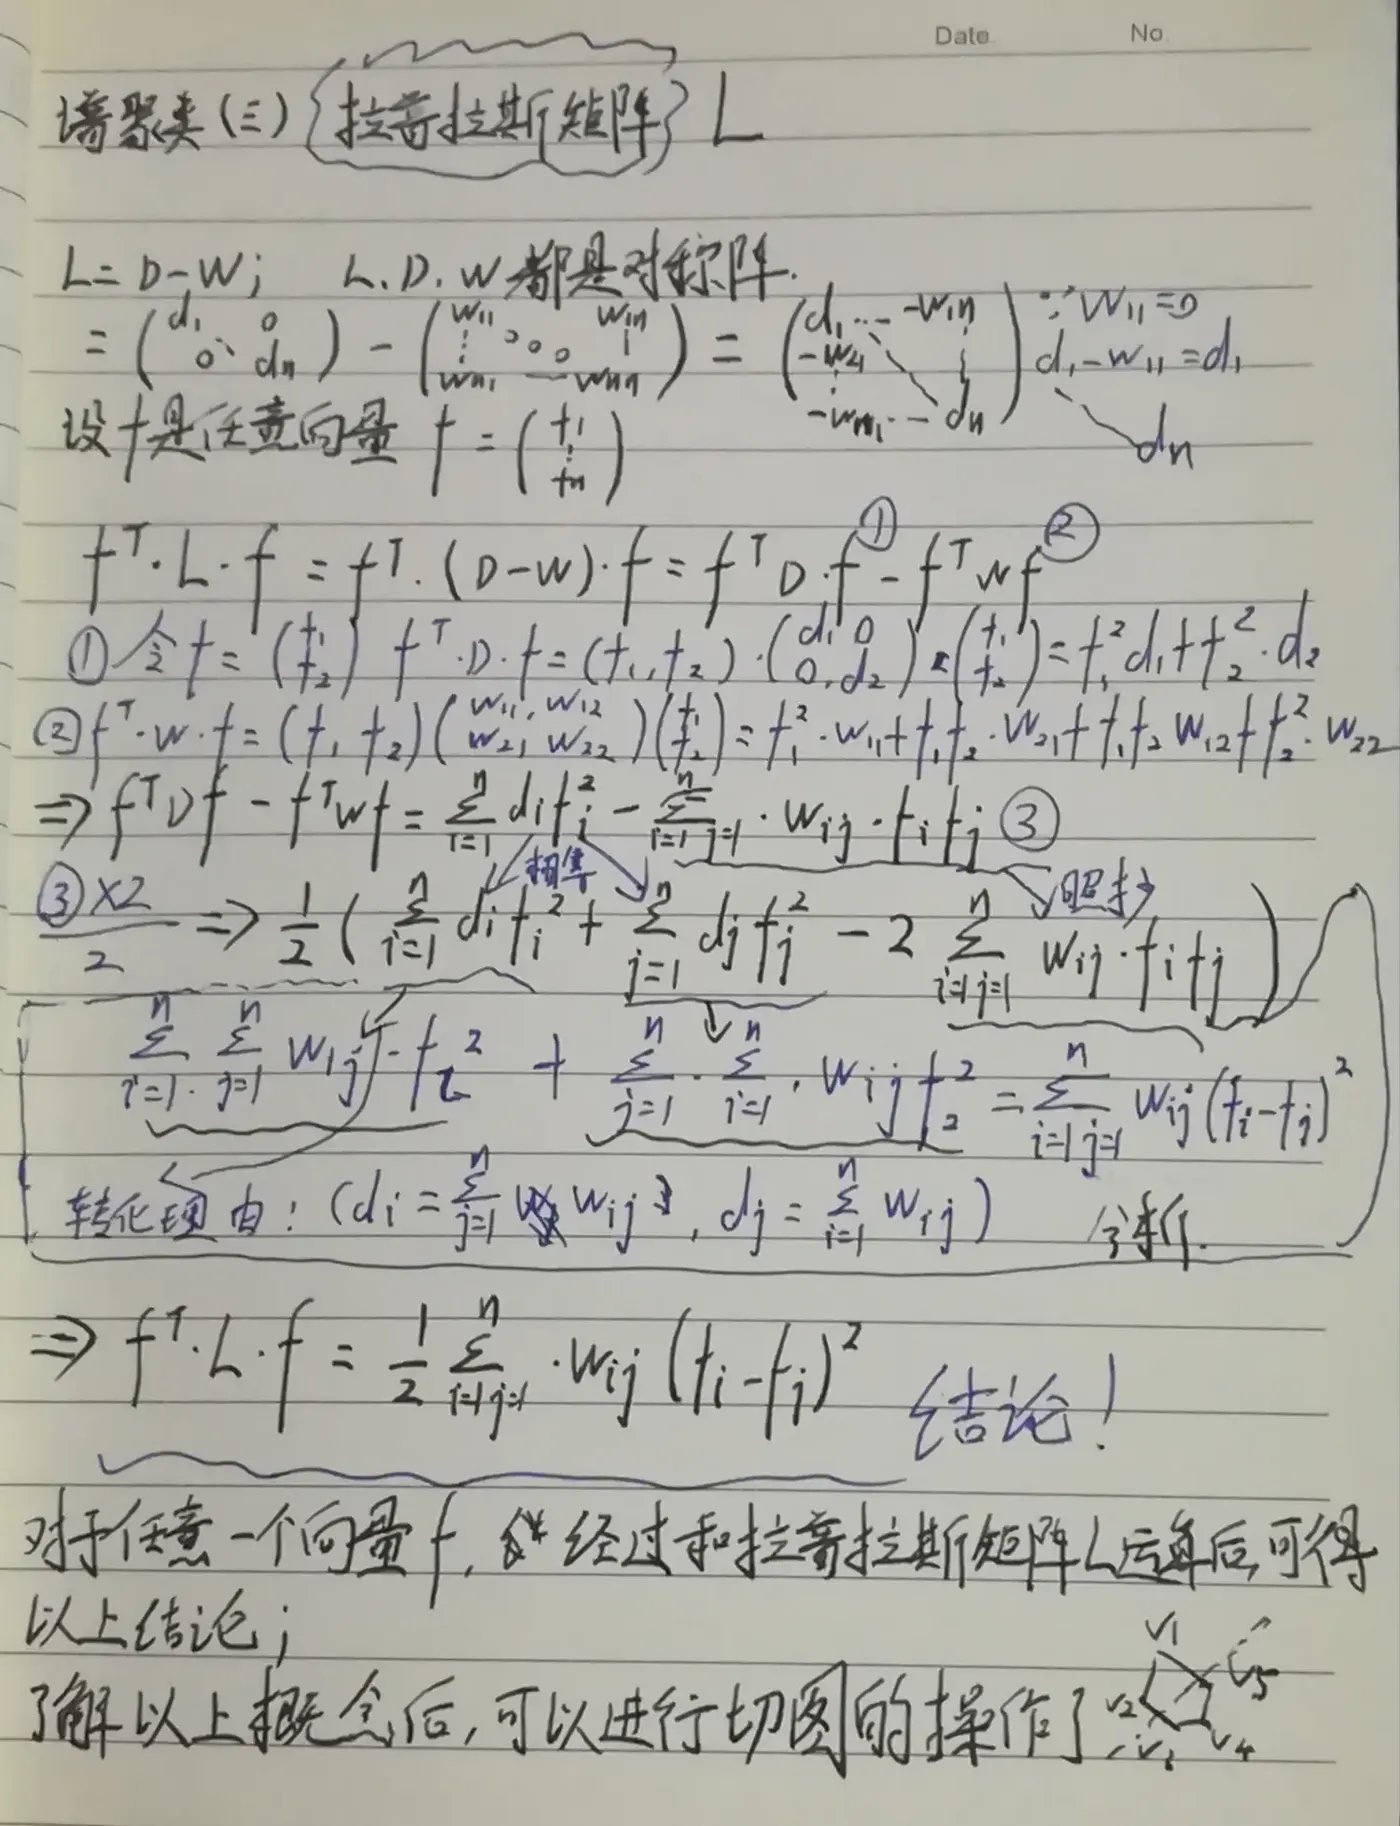 Date No
谱聚类(三) {拉普拉斯矩阵} L
L = D-W; L.D.W都是对称阵.
= (d₁ 0 0 ⋱ dₙ) - (w₁₁ w₁ₙ ⋮ ∘∘∘ ⋮ wₙ₁ — wₙₙ) = (d₁ … -w₁ₙ -w₂₁ ⋮ -wₙ₁ … dₙ) ∵W₁₁=0
d₁-w₁₁=d₁
dₙ
设f是任意向量 f = (f₁ ⋮ fₙ)
fᵀ·L·f = fᵀ.(D-W)·f = fᵀD.f① - fᵀWf②
①令f=(f₁ f₂) fᵀ·D·f=(f₁,f₂)·(d₁ 0 0,d₂)×(f₁ f₂)=f₁²d₁+f₂²·d₂
②fᵀ·w·f=(f₁ f₂)(w₁₁,w₁₂ w₂₁,w₂₂)(f₁ f₂)=f₁²·w₁₁+f₁f₂·w₂₁+f₁f₂w₁₂+f₂²·w₂₂
=> fᵀDf - fᵀWf = Σⁿᵢ₌₁ dᵢfᵢ² - Σⁿᵢ₌₁ⱼ₌₁ · wᵢⱼ·fᵢfⱼ ③
相等 照抄
③×2/2 => 1/2 (Σⁿᵢ₌₁ dᵢfᵢ² + Σⁿⱼ₌₁ dⱼfⱼ² - 2 Σⁿᵢ₌₁ⱼ₌₁ wᵢⱼ·fᵢfⱼ)
Σⁿᵢ₌₁. Σⁿⱼ₌₁ wᵢⱼ·fᵢ² + Σⁿⱼ₌₁ · Σⁿᵢ₌₁ · wᵢⱼf₂² = Σⁿᵢ₌₁ⱼ₌₁ wᵢⱼ(fᵢ-fⱼ)²
转化理由: (dᵢ=Σⁿⱼ₌₁ wᵢⱼ, dⱼ=Σⁿᵢ₌₁ wᵢⱼ) 分析.
=> fᵀ·L·f = 1/2 Σⁿᵢ₌₁ⱼ₌₁ ·wᵢⱼ(fᵢ-fⱼ)² 结论!
对于任意一个向量f, 经过和拉普拉斯矩阵L运算后,可得
以上结论;
了解以上概念后,可以进行切图的操作了
v₁
v₂ v₅
v₃ v₄